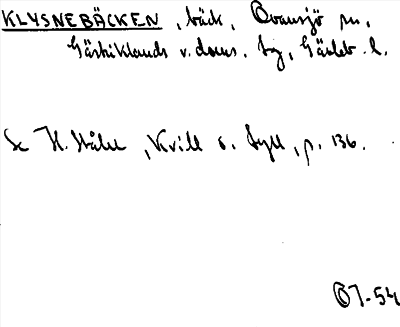 KLYSNEBÄCKEN, bäck, Ovansjö sn,
Gästriklands v. doms. tg, Gävleb. l.
Se H. Ståhle, Kvill o. tyll, p. 136.
OJ-54